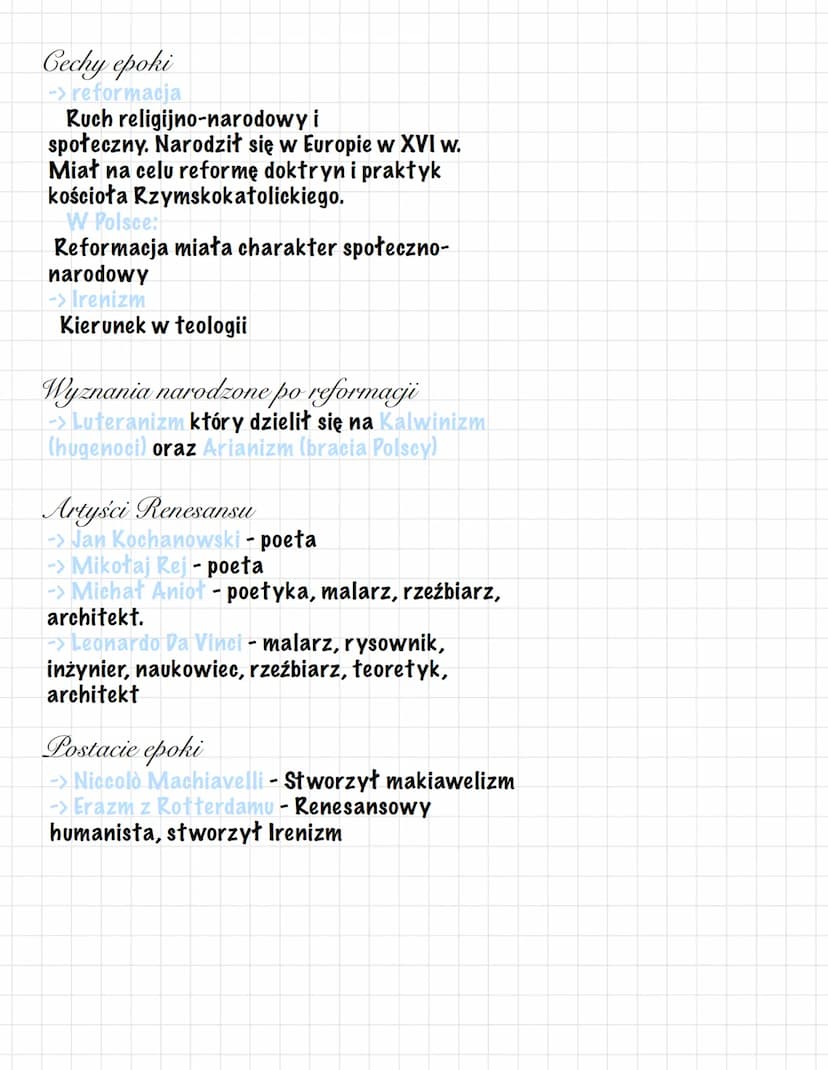 Cechy epoki
-> reformacja
Ruch religijno-narodowy i
społeczny. Narodził się w Europie w XVI w.
Miał na celu reformę doktryn i praktyk
kościoła Rzymskokatolickiego.
W Polsce:
Reformacja miała charakter społeczno-
narodowy
-> Irenizm
Kierunek w teologii
Wyznania narodzone po reformacji
-> Luteranizm który dzielił się na Kalwinizm
(hugenoci) oraz Arianizm (bracia Polscy)
Artyści Renesansu
-> Jan Kochanowski - poeta
-> Mikołaj Rej - poeta
-> Michał Anioł - poetyka, malarz, rzeźbiarz,
architekt.
-> Leonardo Da Vinci - malarz, rysownik,
inżynier, naukowiec, rzeźbiarz, teoretyk,
architekt
Postacie epoki
-> Niccolò Machiavelli - Stworzył makiawelizm
-> Erazm z Rotterdamu - Renesansowy
humanista, stworzył Irenizm